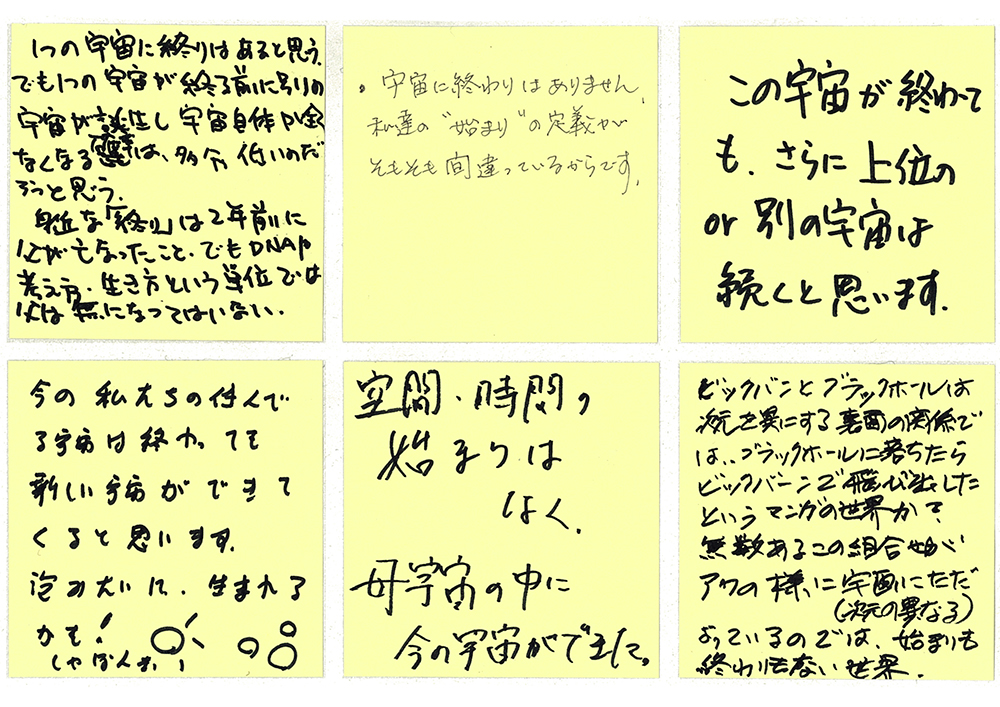 1つの宇宙に終りはあると思う。
でも1つの宇宙が終る前に別の
宇宙が誕生し宇宙自体が全
なくなる は、多分低いのだ
ろうと思う。
身近な「終り」は2年前に
父が亡なったこと。でもDNAや
考え方・生き方という単位では
父は無になってはいない。
・宇宙に終わりはありません。
私達の"始まり"の定義が
そもそも間違っているからです。
この宇宙が終わって
も、さらに上位の
or 別の宇宙は
続くと思います。
今の私たちの住んで
る宇宙は終わっても
新しい宇宙ができて
くると思います。
泡みたいに、生まれる
かも!
しゃぼん
空間・時間の
始まりは
なく、
母宇宙の中に
今の宇宙ができた。
ビックバンとブラックホールは
次元を異にする裏面の関係で
は、、ブラックホールに落ちたら
ビックバーンで飛び出した
というマンガの世界かで
無数あるこの組合せが
アワの様に宇宙にただ
(次元の異なる)
よっているのでは、始まりも
終わりもない世界。